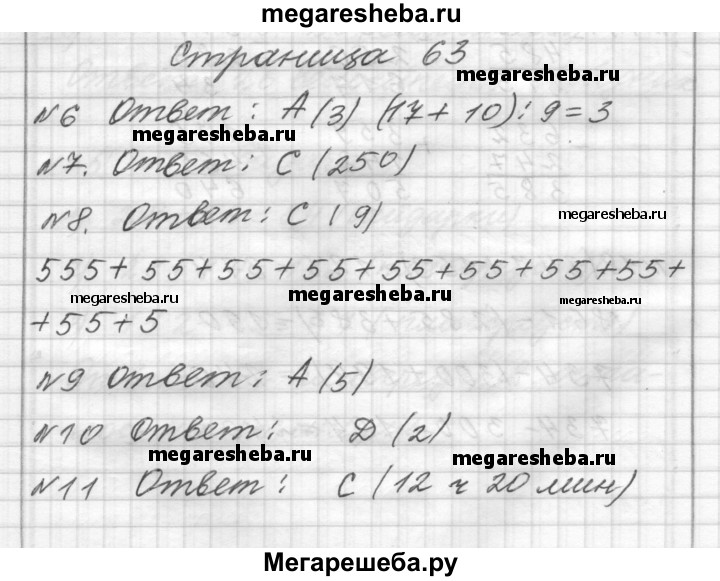 megaresheba.ru
Страница 63
megaresheba.ru
№6 Ответ: A (3) (17+10):9=3
megaresheba.ru
№7. Ответ: C (250)
№8. Ответ: C (9)
megaresheba.ru
555+55+55+55+55+55+55+55+
megaresheba.ru megaresheba.ru megaresheba.ru
+55+5
megaresheba.ru
№9 Ответ: A (5)
№10 Ответ: D (2)
megaresheba.ru
megaresheba.ru megaresheba.ru
№11 Ответ: C (12 ч 20 мин)
Мегарешеба.ру